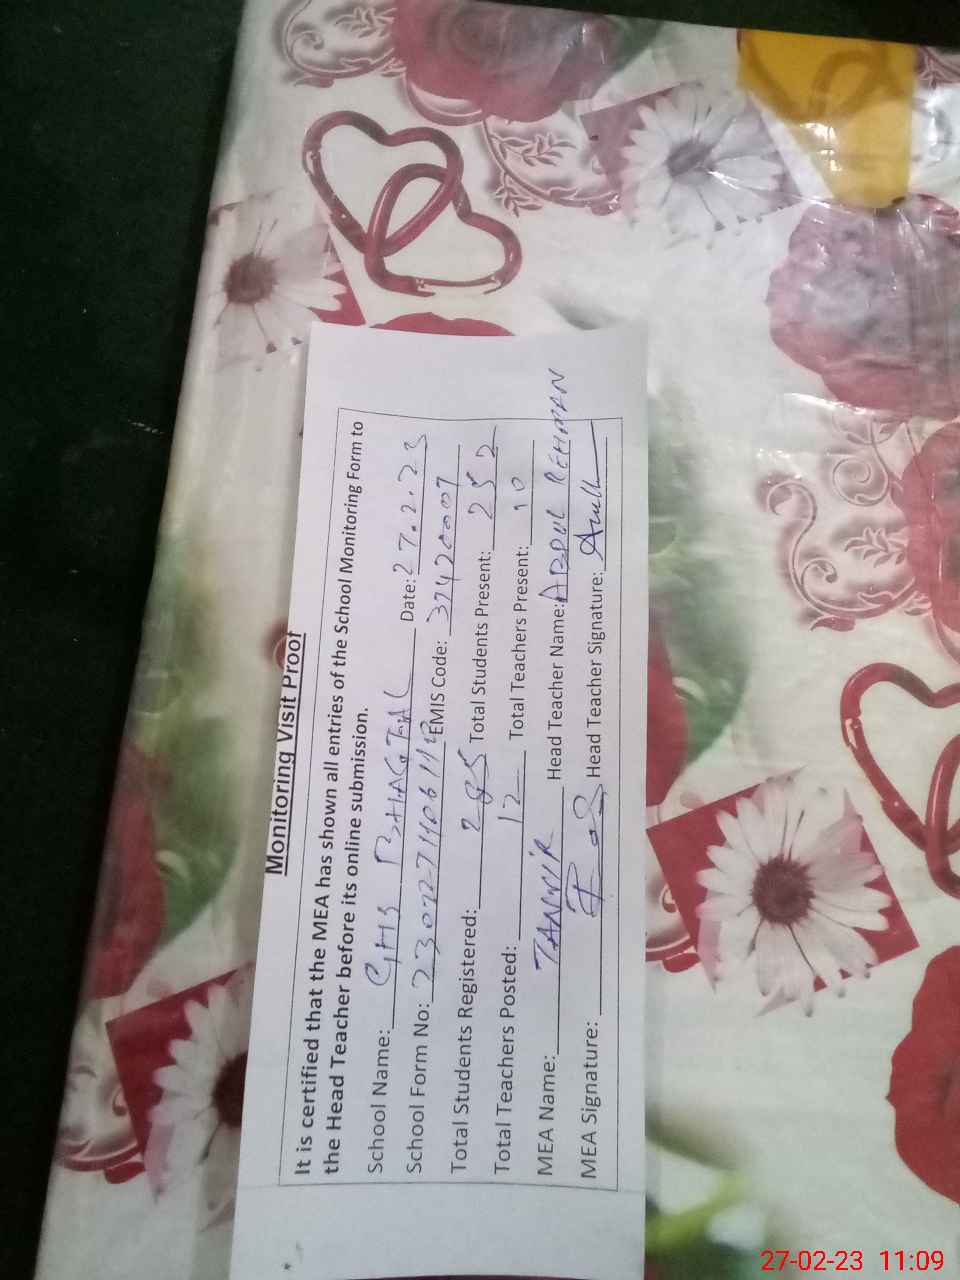 Monitoring Visit Proof
It is certified that the MEA has shown all entries of the School Monitoring Form to
the Head Teacher before its online submission.
School Name: GHS BHAGTAL Date: 27.2.23
School Form No: EMIS Code: 37420007
Total Students Registered: 285 Total Students Present: 252
Total Teachers Posted: 12 Total Teachers Present: 10
MEA Name: TANWIR Head Teacher Name: ABDUL REHMAN
MEA Signature: Head Teacher Signature:
27-02-23 11:09